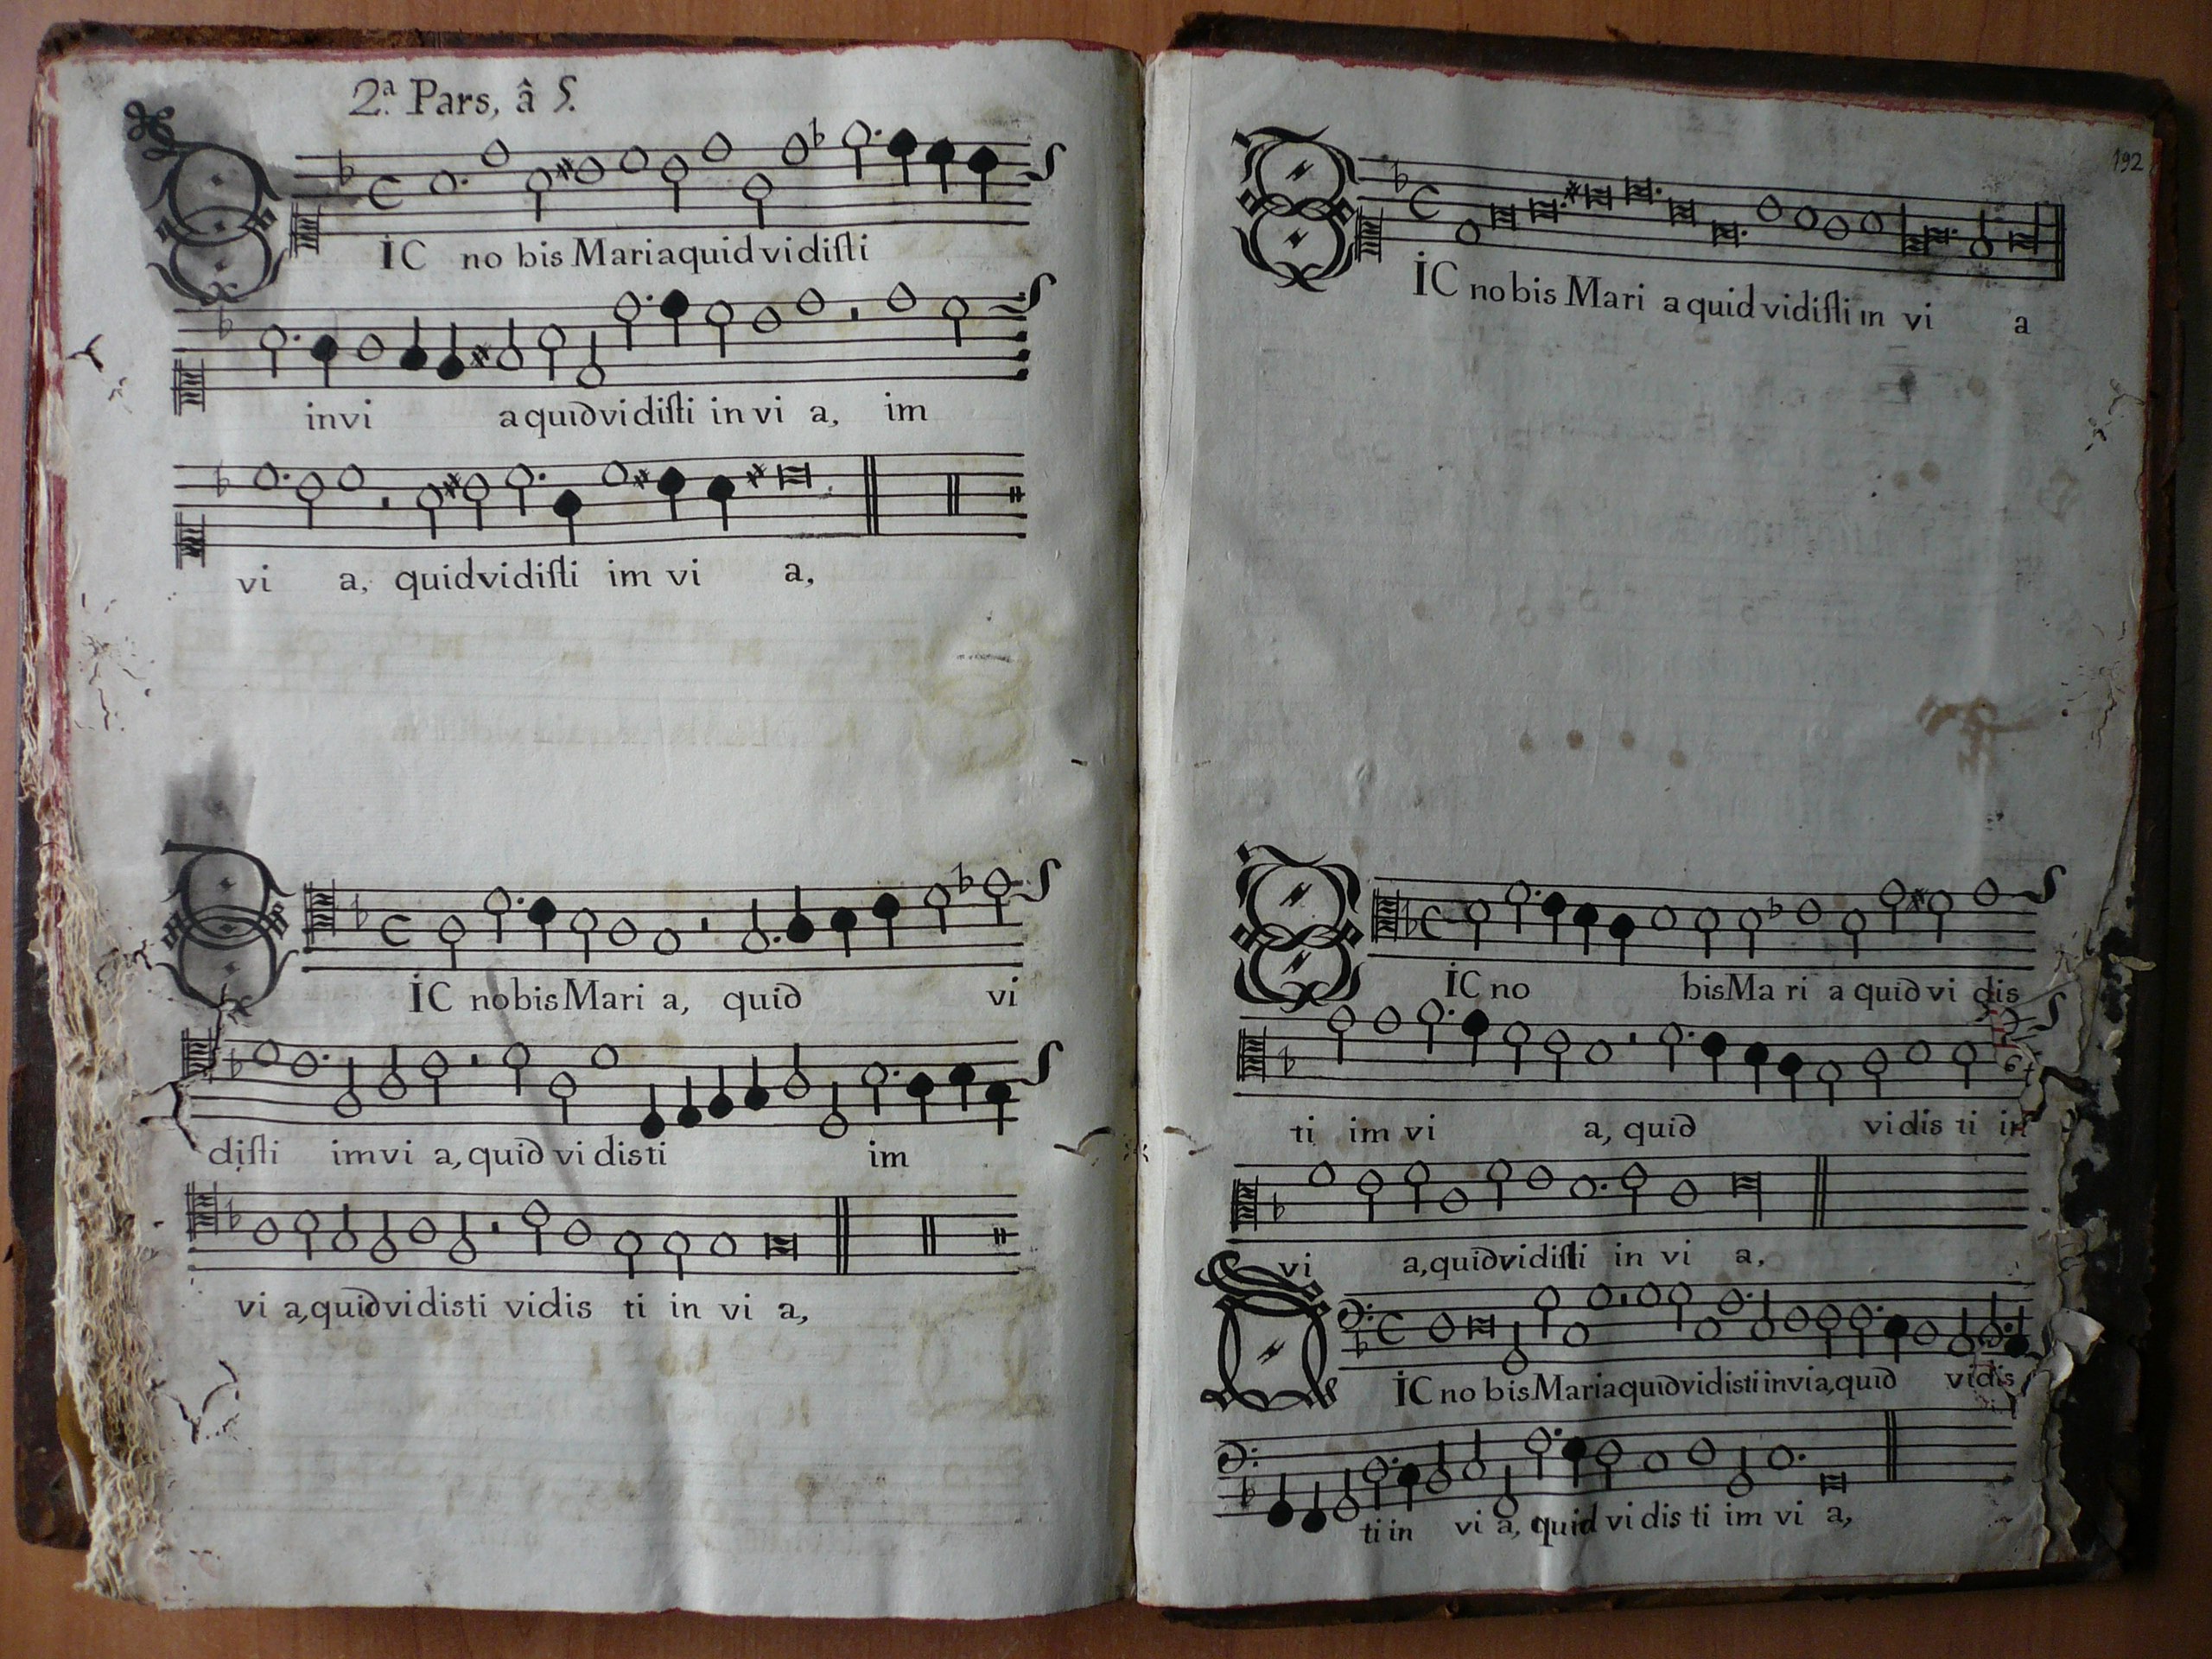 2.ª Pars, â 5.
DIC no bis Maria quid vidisti
in vi a quid vidisti in vi a, im
vi a, quid vidisti im vi a,
DIC nobis Mari a, quid vi
disti im vi a, quid vi disti im
vi a, quid vidisti vidis ti in vi a,
192
DIC no bis Mari a quid vidisti in vi a
DIC no bis Ma ri a quid vi dis
ti im vi a, quid vidis ti in
vi a, quid vidisti in vi a,
DIC no bis Maria quid vidisti in via, quid vidis
ti in vi a, quid vi dis ti im vi a,